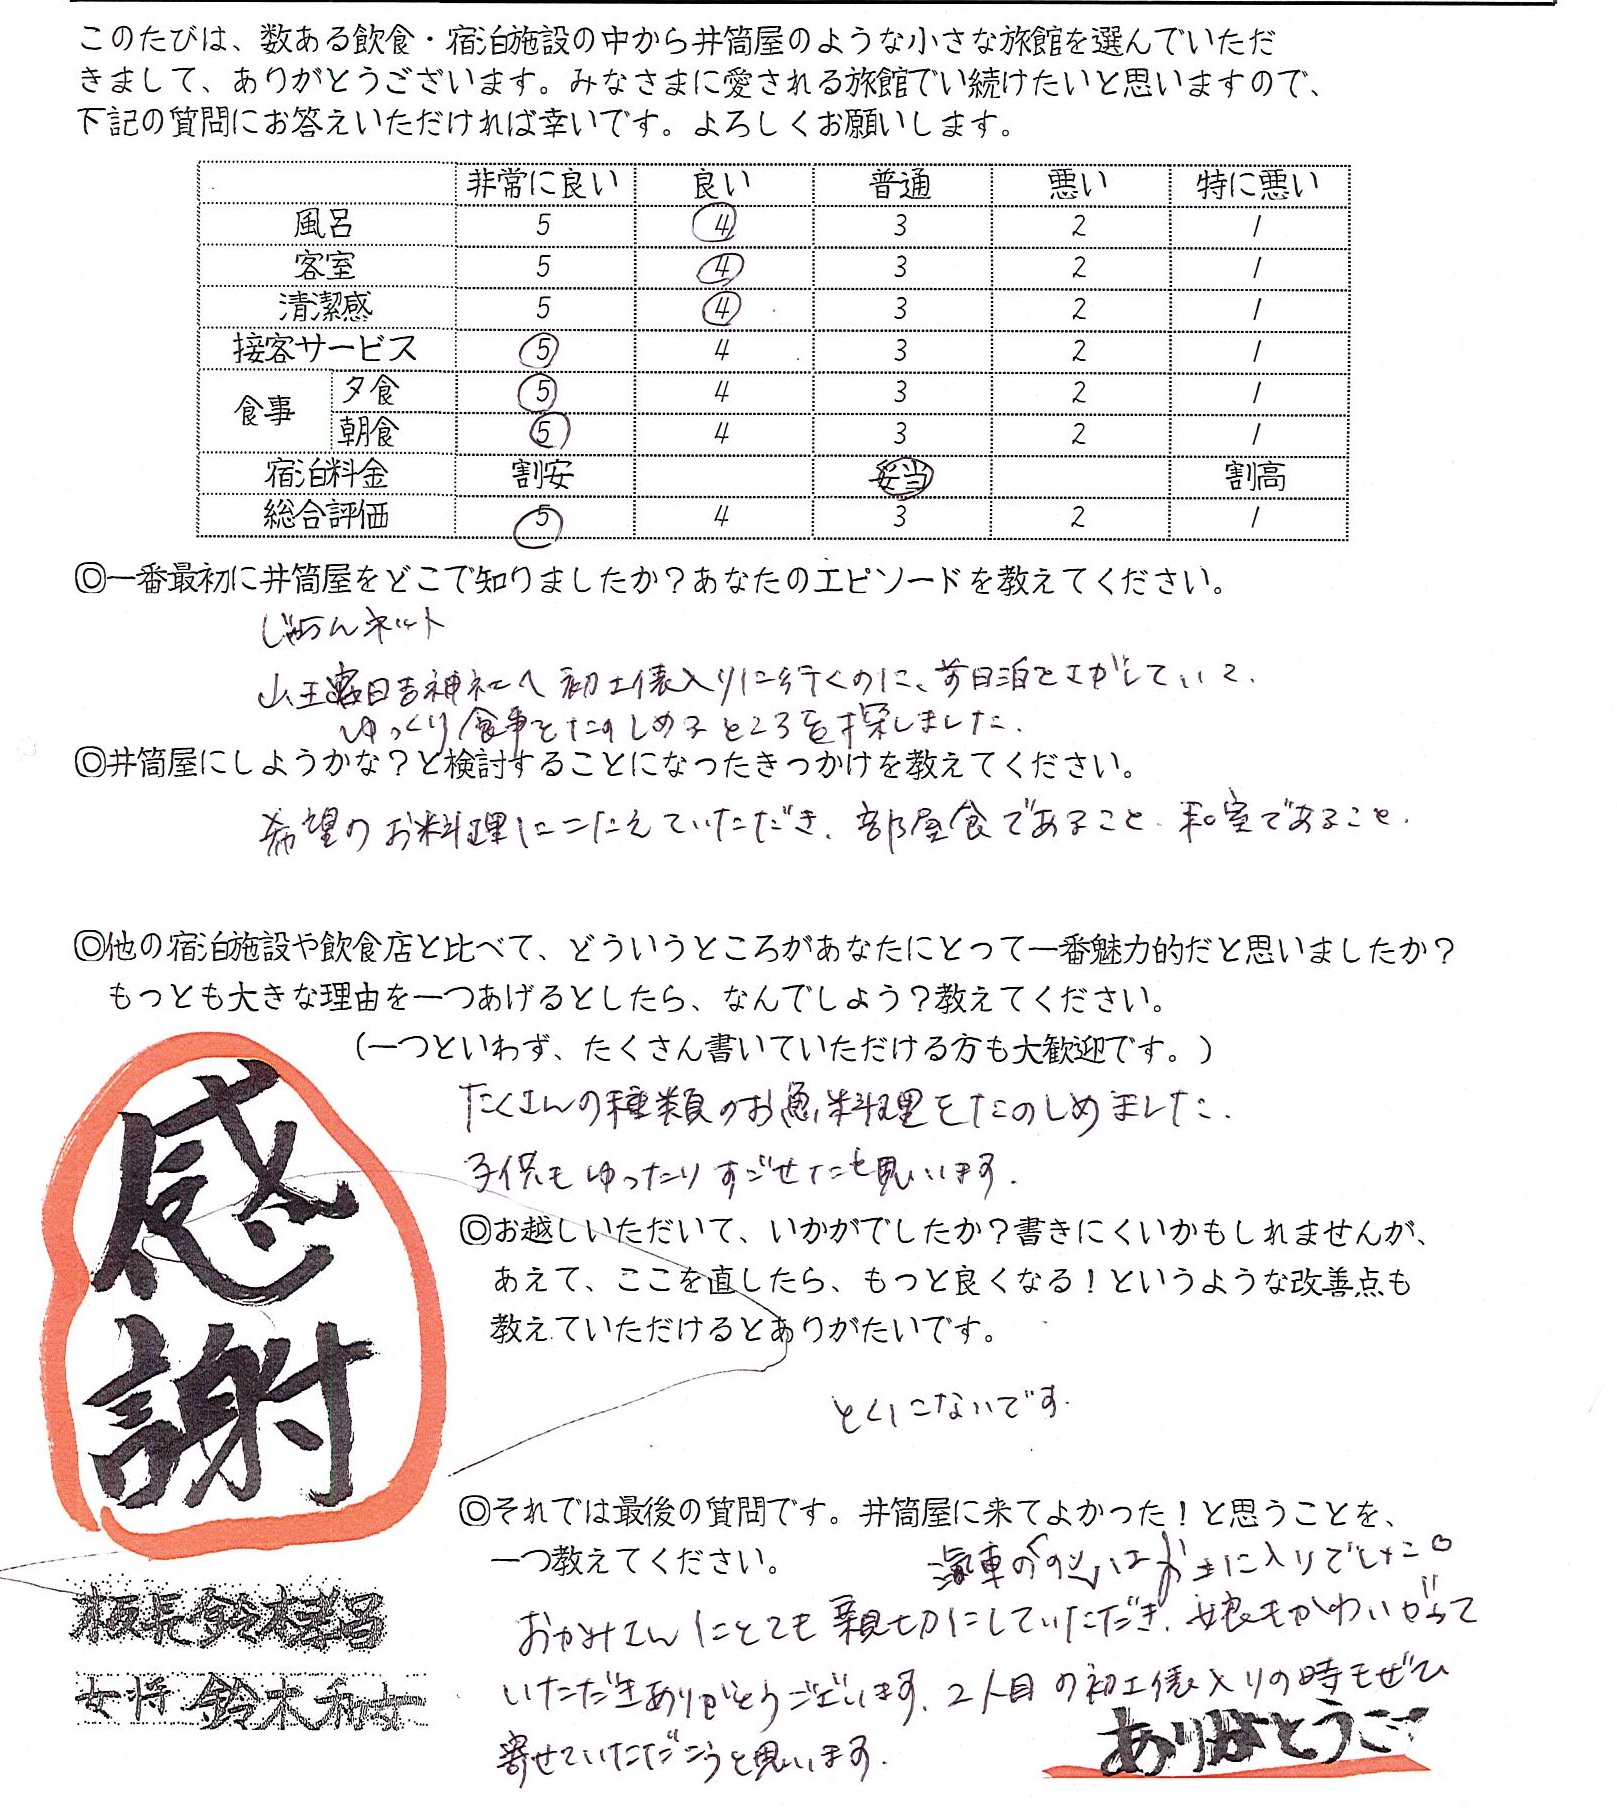 このたびは、数ある飲食・宿泊施設の中から井筒屋のような小さな旅館を選んでいただ
きまして、ありがとうございます。みなさまに愛される旅館でい続けたいと思いますので、
下記の質問にお答えいただければ幸いです。よろしくお願いします。
非常に良い 良い 普通 悪い 特に悪い
風呂 5 4 3 2 1
客室 5 4 3 2 1
清潔感 5 4 3 2 1
接客サービス 5 4 3 2 1
食事 夕食 5 4 3 2 1
朝食 5 4 3 2 1
宿泊料金 割安 妥当 割高
総合評価 5 4 3 2 1
◎一番最初に井筒屋をどこで知りましたか？あなたのエピソードを教えてください。
じゃらんネット
山王 日吉神社へ初土俵入りに行くのに、前日泊をさがしていて、
ゆっくり食事をたのしめるところを探しました。
◎井筒屋にしようかな？と検討することになったきっかけを教えてください。
希望のお料理にこたえていただき、部屋食であること、和室であること。
◎他の宿泊施設や飲食店と比べて、どういうところがあなたにとって一番魅力的だと思いましたか？
もっとも大きな理由を一つあげるとしたら、なんでしょう？教えてください。
（一つといわず、たくさん書いていただける方も大歓迎です。）
たくさんの種類のお魚料理をたのしめました。
子供もゆったりすごせたと思います。
◎お越しいただいて、いかがでしたか？書きにくいかもしれませんが、
あえて、ここを直したら、もっと良くなる！というような改善点も
教えていただけるとありがたいです。
とくにないです。
◎それでは最後の質問です。井筒屋に来てよかった！と思うことを、
一つ教えてください。
汽車の はお気に入りでした○
おかみさんにとても親切にしていただき、娘もかわいがって
いただきありがとうございます。2人目の初土俵入りの時もぜひ
寄せていただこうと思います。
感謝
板長 鈴木孝昌
女将 鈴木和女
ありがとうご